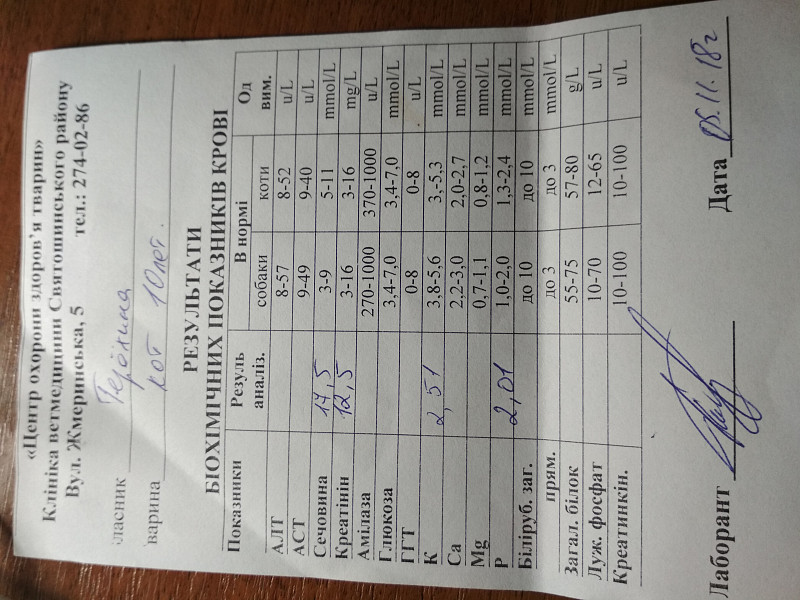 «Центр охорони здоров'я тварин»
Клініка ветмедицини Святошинського району
Вул. Жмеринська, 5 тел.: 274-02-86
ласник Терёхина
варина кот 10лет.
РЕЗУЛЬТАТИ
БІОХІМІЧНИХ ПОКАЗНИКІВ КРОВІ
Показники Резуль аналіз. В нормі Од вим.
собаки коти
АЛТ 8-57 8-52 u/L
АСТ 9-49 9-40 u/L
Сечовина 14,5 3-9 5-11 mmol/L
Креатінін 12,5 3-16 3-16 mg/L
Амілаза 270-1000 370-1000 u/L
Глюкоза 3,4-7,0 3,4-7,0 mmol/L
ГГТ 0-8 0-8 u/L
К 2,51 3,8-5,6 3,-5,3 mmol/L
Са 2,2-3,0 2,0-2,7 mmol/L
Mg 0,7-1,1 0,8-1,2 mmol/L
P 2,01 1,0-2,0 1,3-2,4 mmol/L
Біліруб. заг. до 10 до 10 mmol/L
прям. до 3 до 3 mmol/L
Загал. білок 55-75 57-80 g/L
Луж. фосфат 10-70 12-65 u/L
Креатинкін. 10-100 10-100 u/L
Лаборант Дата 05.11.18г